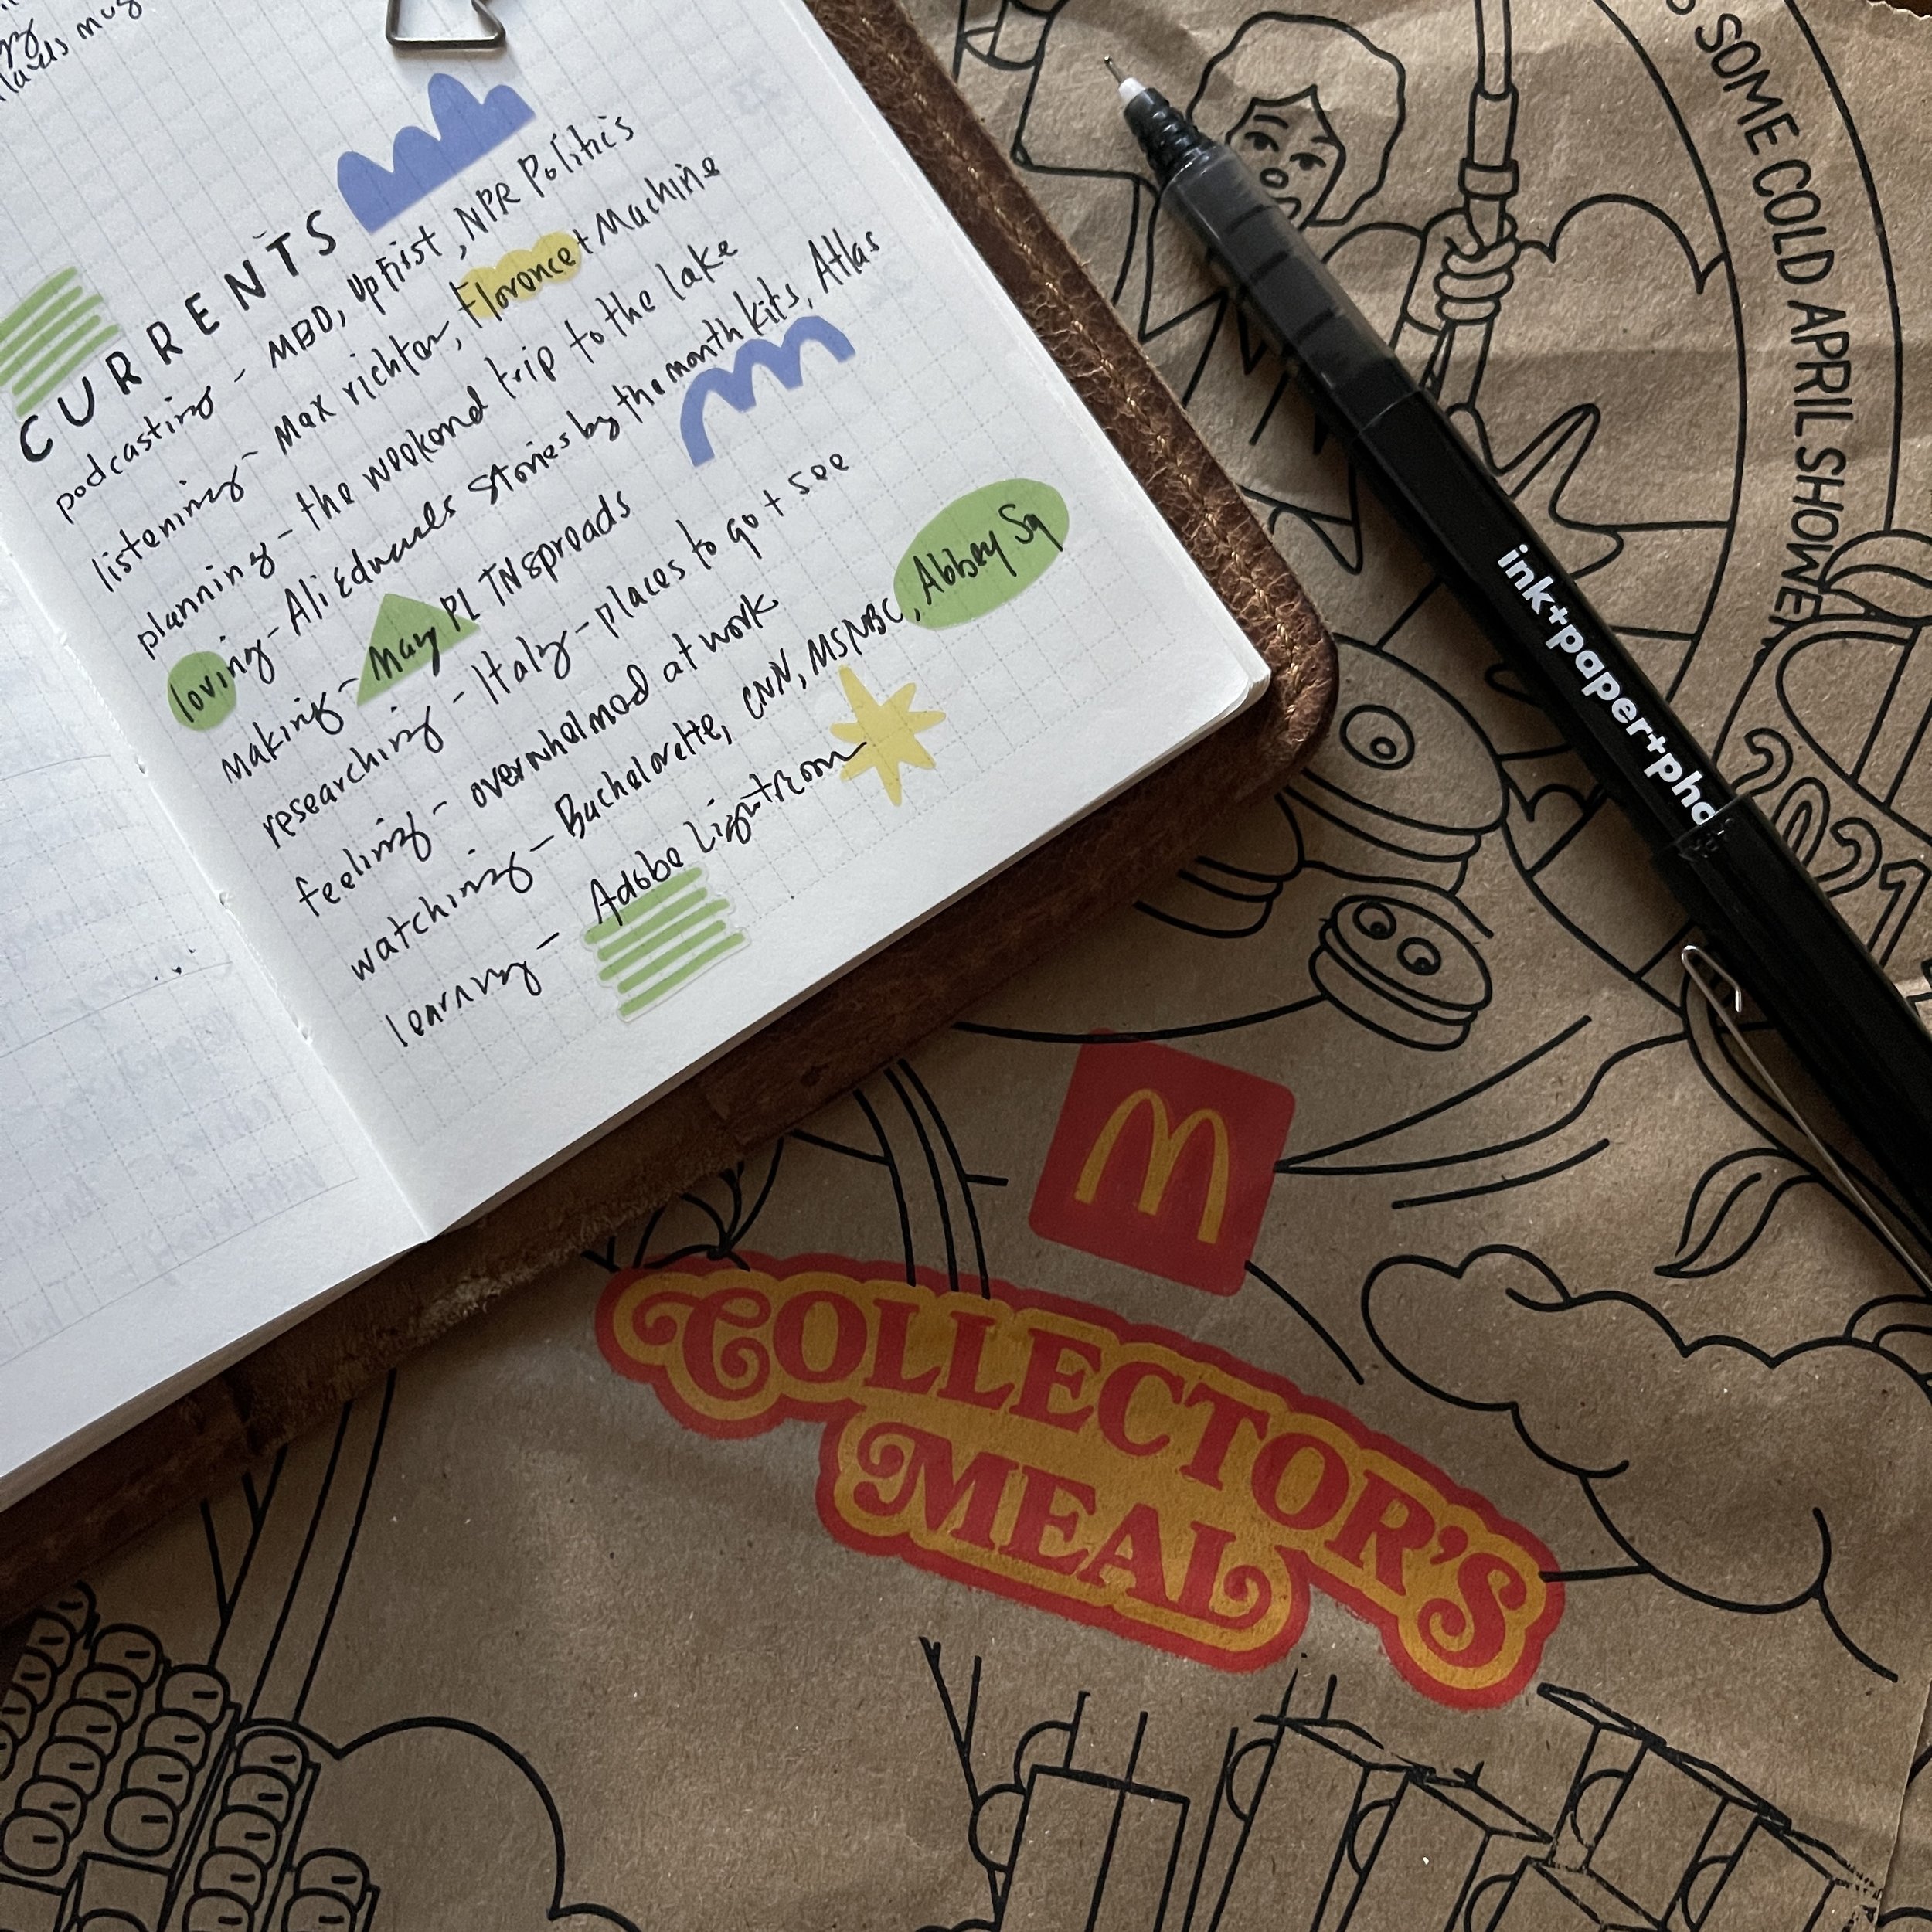 CURRENTS
podcasting - MBD, Upfirst, NPR Politics
listening - Max richter, Florence + Machine
planning - the weekend trip to the lake
loving - Ali Edwards stories by the month kits, Atlas
making - May PL TN spreads
researching - Italy - places to go + see
feeling - overwhelmed at work
watching - Bachelorette, CNN, MSNBC, Abbey Sq
learning - Adobe Lightroom
SOME COLD APRIL SHOWE
2021
ink+paper+pho
M
COLLECTOR'S
MEAL